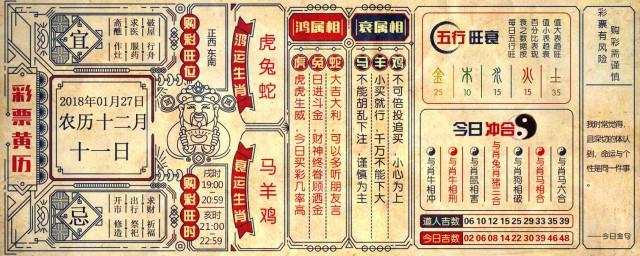 彩票黄历
宜
斋醮
作灶
求医
服药
破屋
行舟
2018年01月27日
农历十二月
十一日
忌
开市
修造
出行
祭祀
求财
祈福
购彩旺位
正西 东南
购彩旺时
戌时
19:00
-
20:59
亥时
21:00
-
22:59
鸿运生肖
虎兔蛇
衰运生肖
马羊鸡
鸿属相
虎兔蛇
大吉大利,可以多听朋友言
日进斗金,财神终眷顾洒金
虎虎生威,今日买彩几率高
衰属相
马羊鸡
不可倍投追买,小心为上
小买就行,千万不能下大
不能胡乱下注,谨慎为主
五行旺衰
值大表趋旺
值小表趋衰
百分比表现
衰之数据按
每日五行旺
金 木 水 火 土
25 10 15 15 35
今日冲合
与肖牛相冲
与肖牛相刑
与肖鼠相害
与肖兔肖猪三合
与肖狗相破
与肖马相合
与肖马六合
道人吉数 06 10 12 15 25 29 33 35 39
今日吉数 02 06 08 14 26 32 39 46 48
购彩需谨慎
彩票有风险
我时常觉得,
且深切的体认
到,命运与个
性是同一件事
。
——今日金句